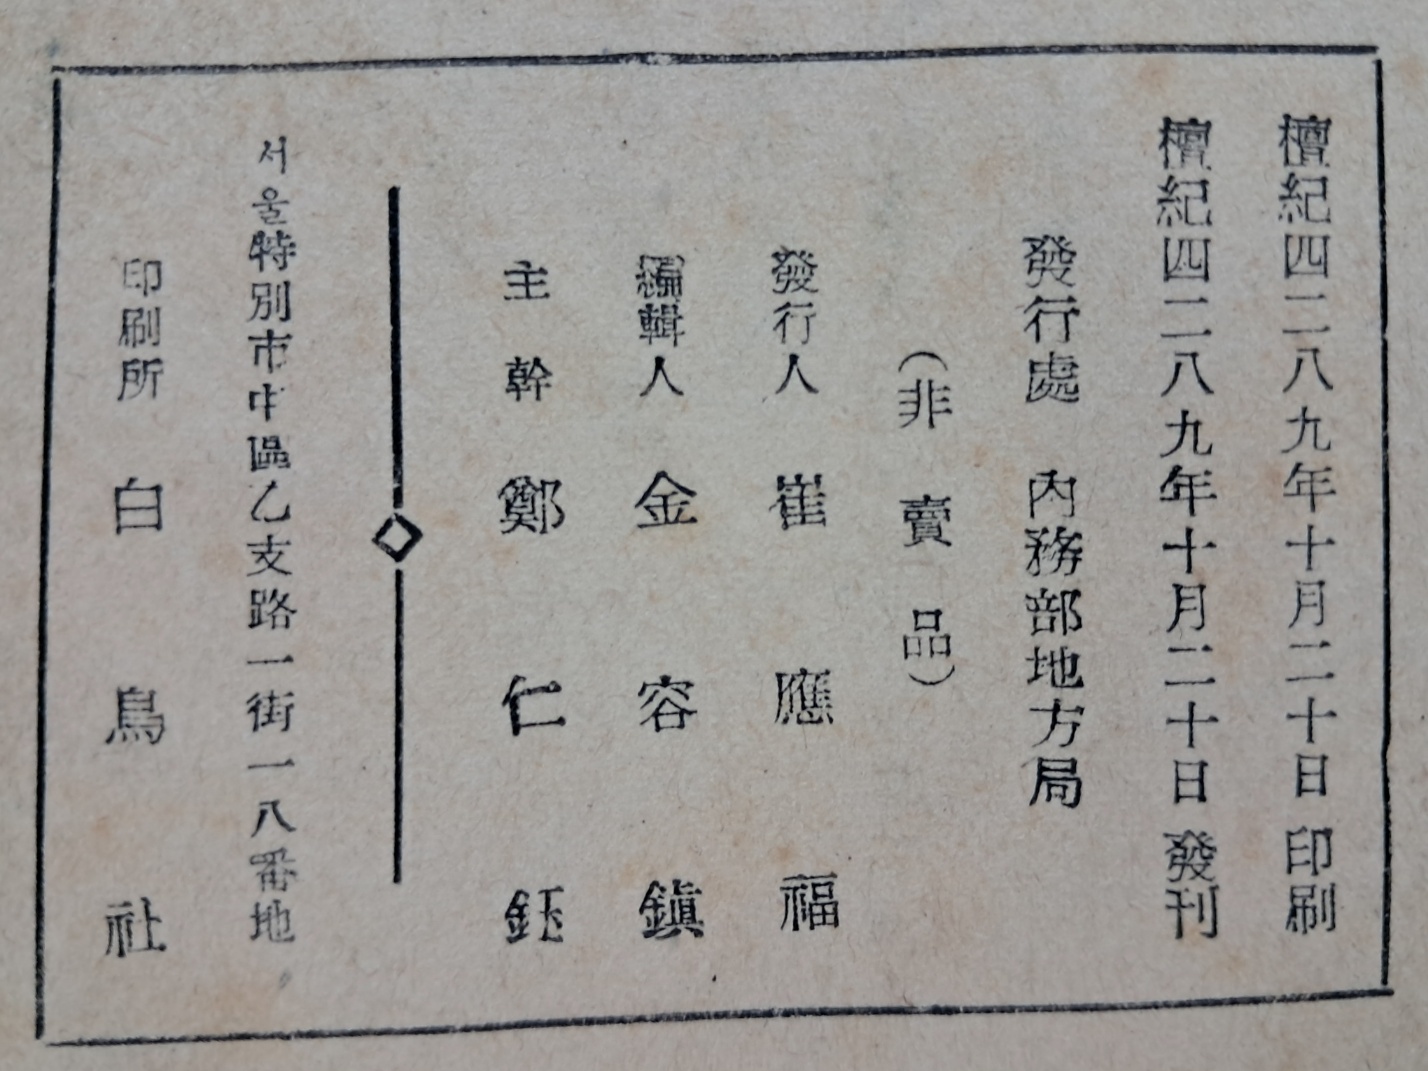 檀紀四二八九年十月二十日 印刷
檀紀四二八九年十月二十日 發刊
發行處 內務部地方局
(非賣品)
發行人 崔應福
編輯人 金容鎭
主幹 鄭仁鈺
서울特別市中區乙支路一街一八番地
印刷所 白鳥社